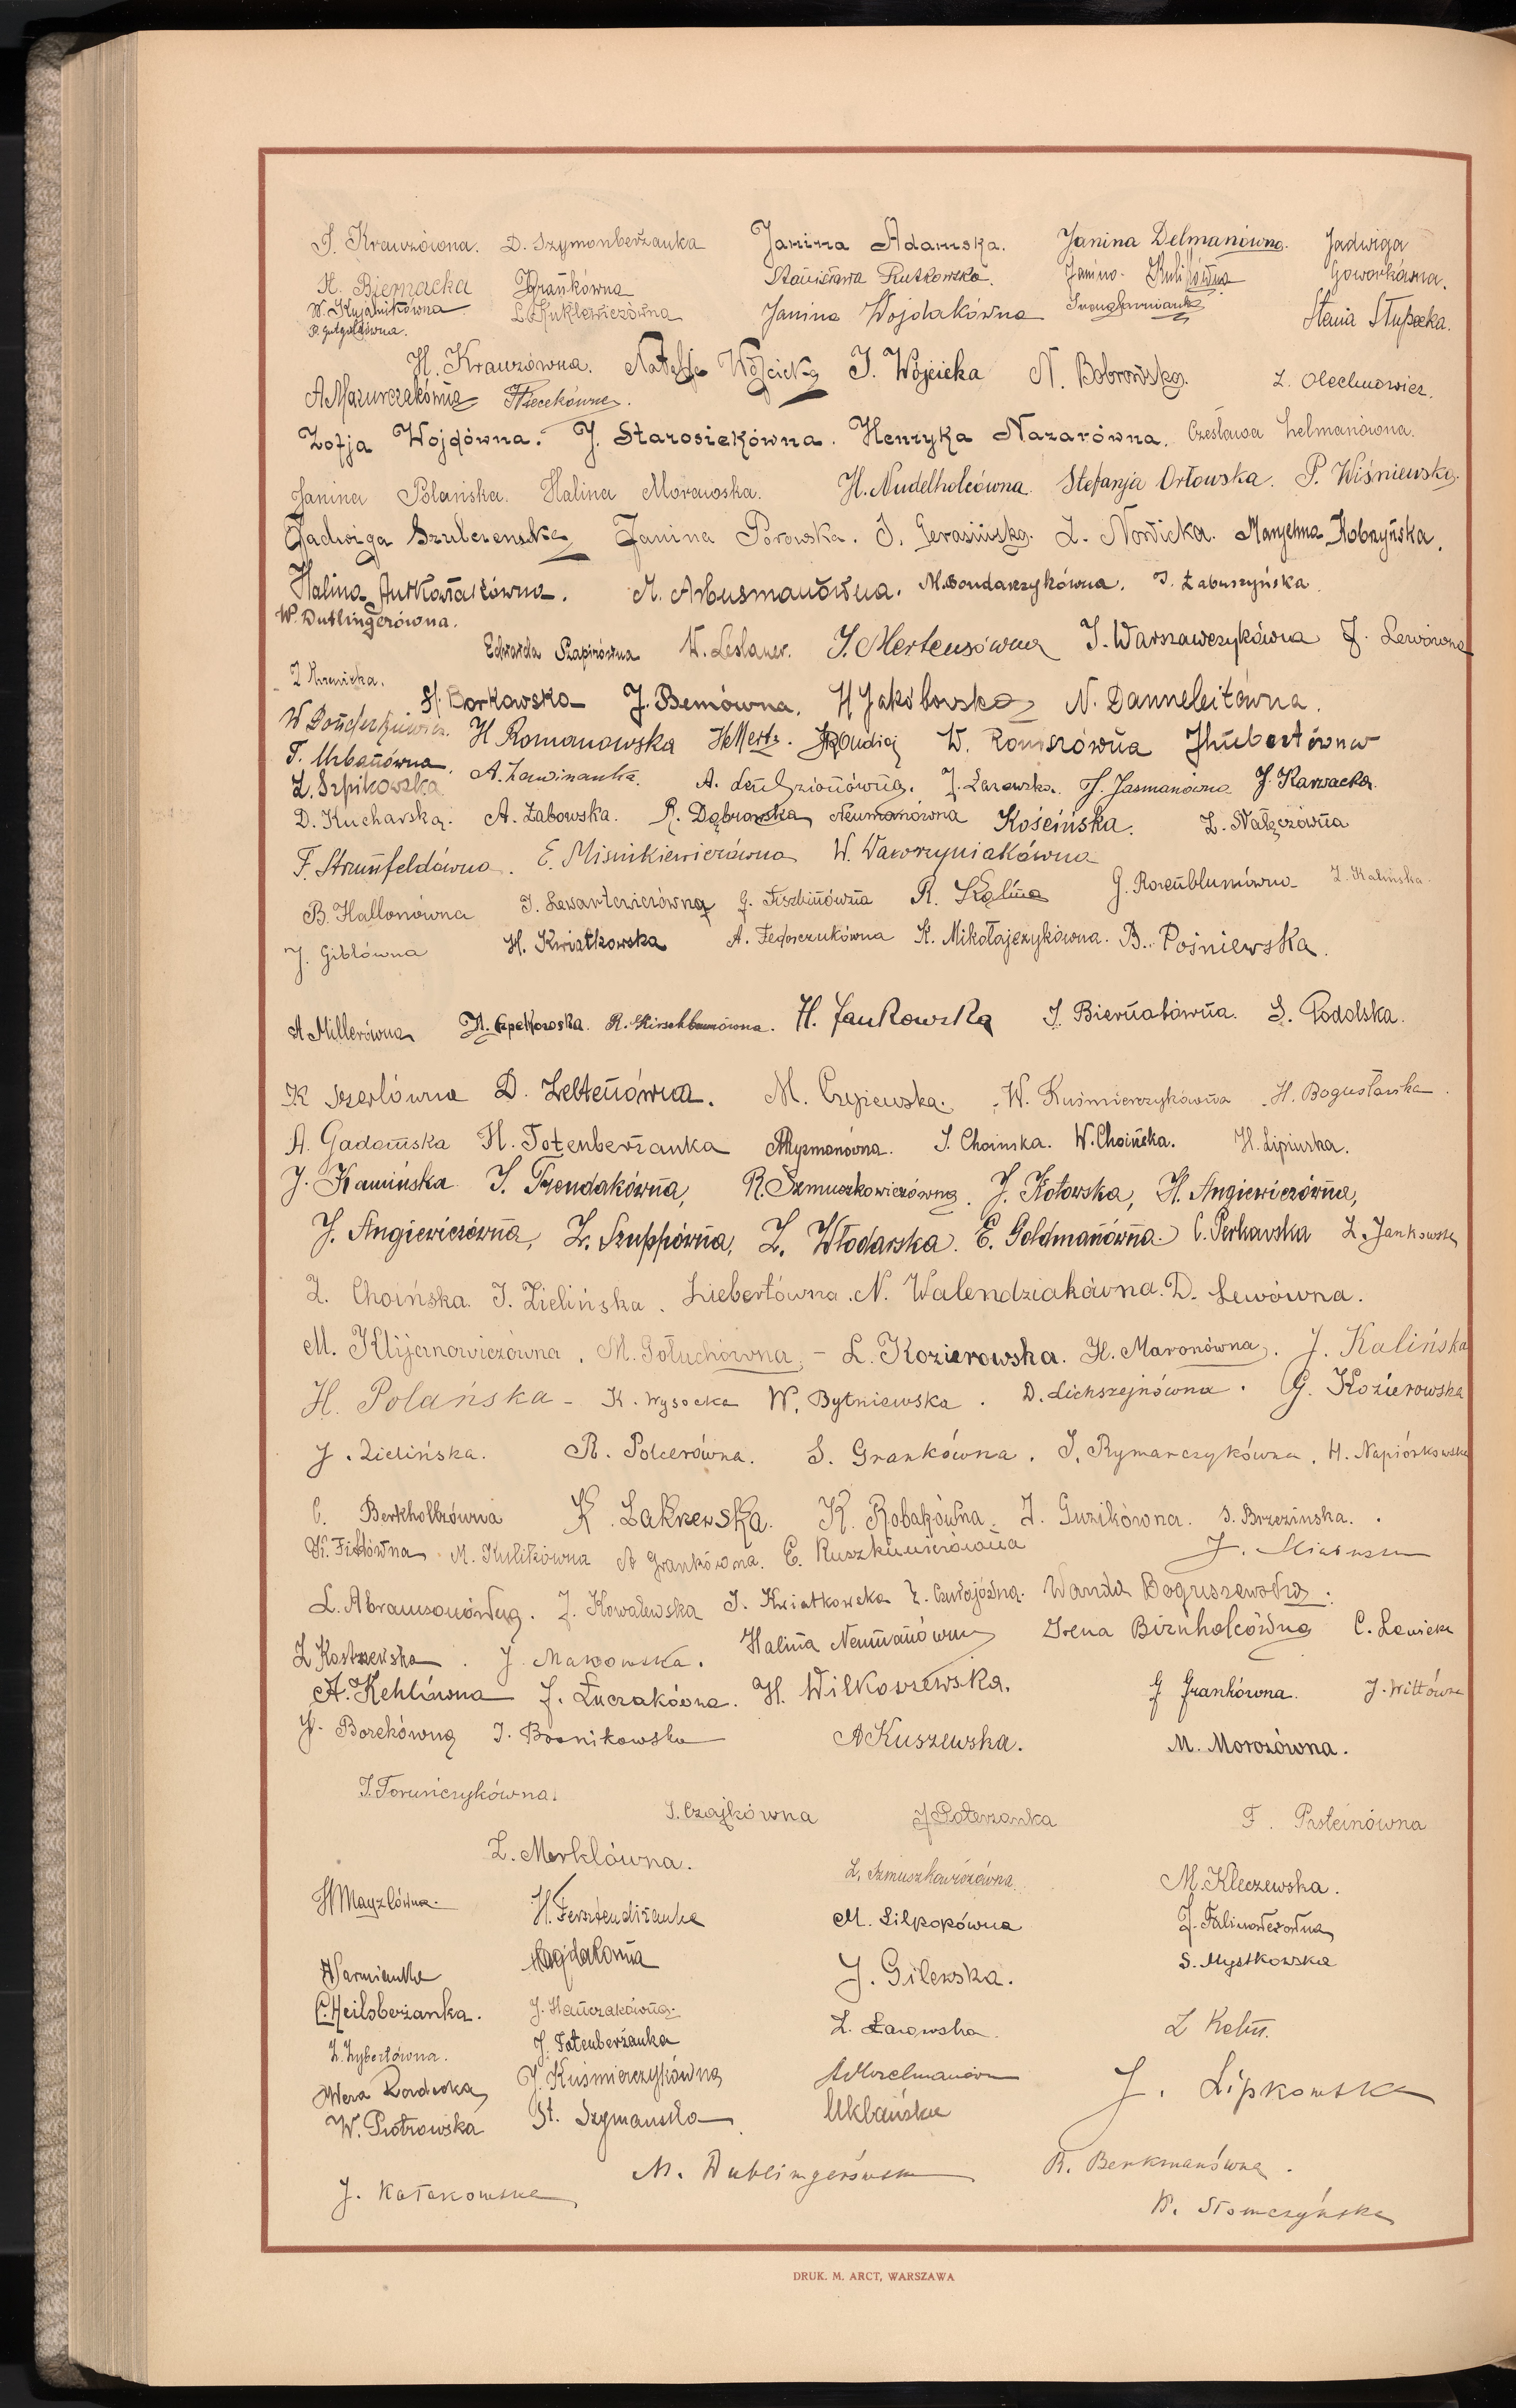 S. Krauzówna. D. Szymonberżanka Janina Adamska. Janina Delmanówna. Jadwiga Goworkówna.
H. Biernacka Frankówna Stanisława Rutkowska. Janina Kulikówna
W. Kujalnikówna L. Kuklewiczówna Janina Wojdakówna Stania Słupecka.
H. Krauzówna. Natalja Wójcicka J. Wójcicka N. Bobrowska. Z. Olechnowicz.
A Mazurczakówna
Zofja Wojdówna. J. Starosiekówna. Henryka Nazarówna. Czesława Helmanówna.
Janina Polańska. Halina Morawska. H. Nudelholcówna. Stefanja Orłowska. P. Wiśniewska.
Jadwiga Szulczewska Janina Porowska. J. Gerasińska. L. Nowicka. Marjanna Kobzyńska.
Halina Autkowiakówna. M. Arbusmanówna. M. Bondarzykówna. J. Łabuszyńska.
W. Dublingerówna.
Edwarda Szapirówna W. Leslauer. J. Mertensówna J. Warszawczykówna J. Lewówna
H. Borkowska J. Bemówna. H Jakóbowska N. Danneleitówna.
H Romanowska H Mertz. W. Romszówna J Hubertówna
T. Urbanówna. A. Lewinanka. A. Lendzionówna. J. Lazowska. J. Jasmanówna J. Karwacka.
Z. Szpikowska
D. Kucharska. A. Żabowska. R. Dąbrowska Neumanówna Kościńska. Z. Nałęczówna
F. Strumfeldówna. E. Misiukiewiczówna W. Wawrzyniakówna
B. Hallonówna J. Lewartowiczówna G. Fiszbinówna R. Kalina G. Rozenblumówna Z. Kalińska.
J. Giblówna H. Kwiatkowska A. Fedorczukówna K. Mikołajczykówna. B. Pośniewska.
A Millerówna R. Hirschbaumówna. H. Jankowska J. Biernatówna. S. Podolska.
K Szerlówna D. Zeltenówna. M. Czyżewska. W. Kuśmierczykówna H. Bogusławska.
A. Gadomska H. Totenberżanka A Ryzmanówna. J. Choińska. W. Choińska. H. Lipińska.
J. Kamińska J. Trendakówna, R. Szmuszkowiczówna. J. Kotowska, H. Angiewiczówna,
J. Angiewiczówna, Z. Szuppówna, Z. Włodarska. E. Goldmanówna. C. Perkowska Z. Jankowska
Z. Choińska. J. Zielińska. Liebertówna. N. Walendziakówna. D. Lewówna.
M. Klijanowiczówna. M. Gołuchówna. - L. Kozierowska. H. Maronówna. J. Kalińska
H. Polańska - K. Wysocka W. Bytniewska. D. Lichszejnówna. G. Kozierowska
J. Zielińska. R. Polcerówna. S. Grankówna. J. Rymarczykówna. H. Napiórkowska
C. Berkholtzówna K. Zakrzewska. K. Robakówna. J. Guzikówna. S. Brzezinska.
K. Fidlówna M. Kulikówna A Grankówna. E. Ruszkiewiczówna
L. Abramsonówna. J. Kowalewska J. Kwiatkowska Wanda Boguszewska.
Z Kostrzewska. J. Makowska. Halina Neumanówna Irena Birnholcówna C. Lewicka
A. Kehlówna J. Łuczakówna. H. Wilkoszewska. J Grankówna. J. Wittówna
J. Borekówna J. Bronikowska A Kuszewska. M. Morozówna.
J. Toruńczykówna. J. Czajkówna J Poterzanka F. Pasteinówna
Z. Merklówna. Z. Szmuszkowiczówna. M. Kleczewska.
H Mayzlówna. H. Fersztendiżanka M. Lilkokówna J. Falinowerówna
A Warmianka Magdalonna J. Gilewska. S. Mystkowska
C. Heilsberżanka. J. Hańczakówna. Z. Łazowska. Z Kohn.
Z. Zybertówna. J. Totenberżanka
Wera Rondwoka J. Kuśmierczykówna J. Lipkowska
W. Piotrowska St. Szymanska Uklańska
J. Kołakowska M. Dublingerówna R. Berkmanówna.
K. Słomczyńska
DRUK. M. ARCT, WARSZAWA